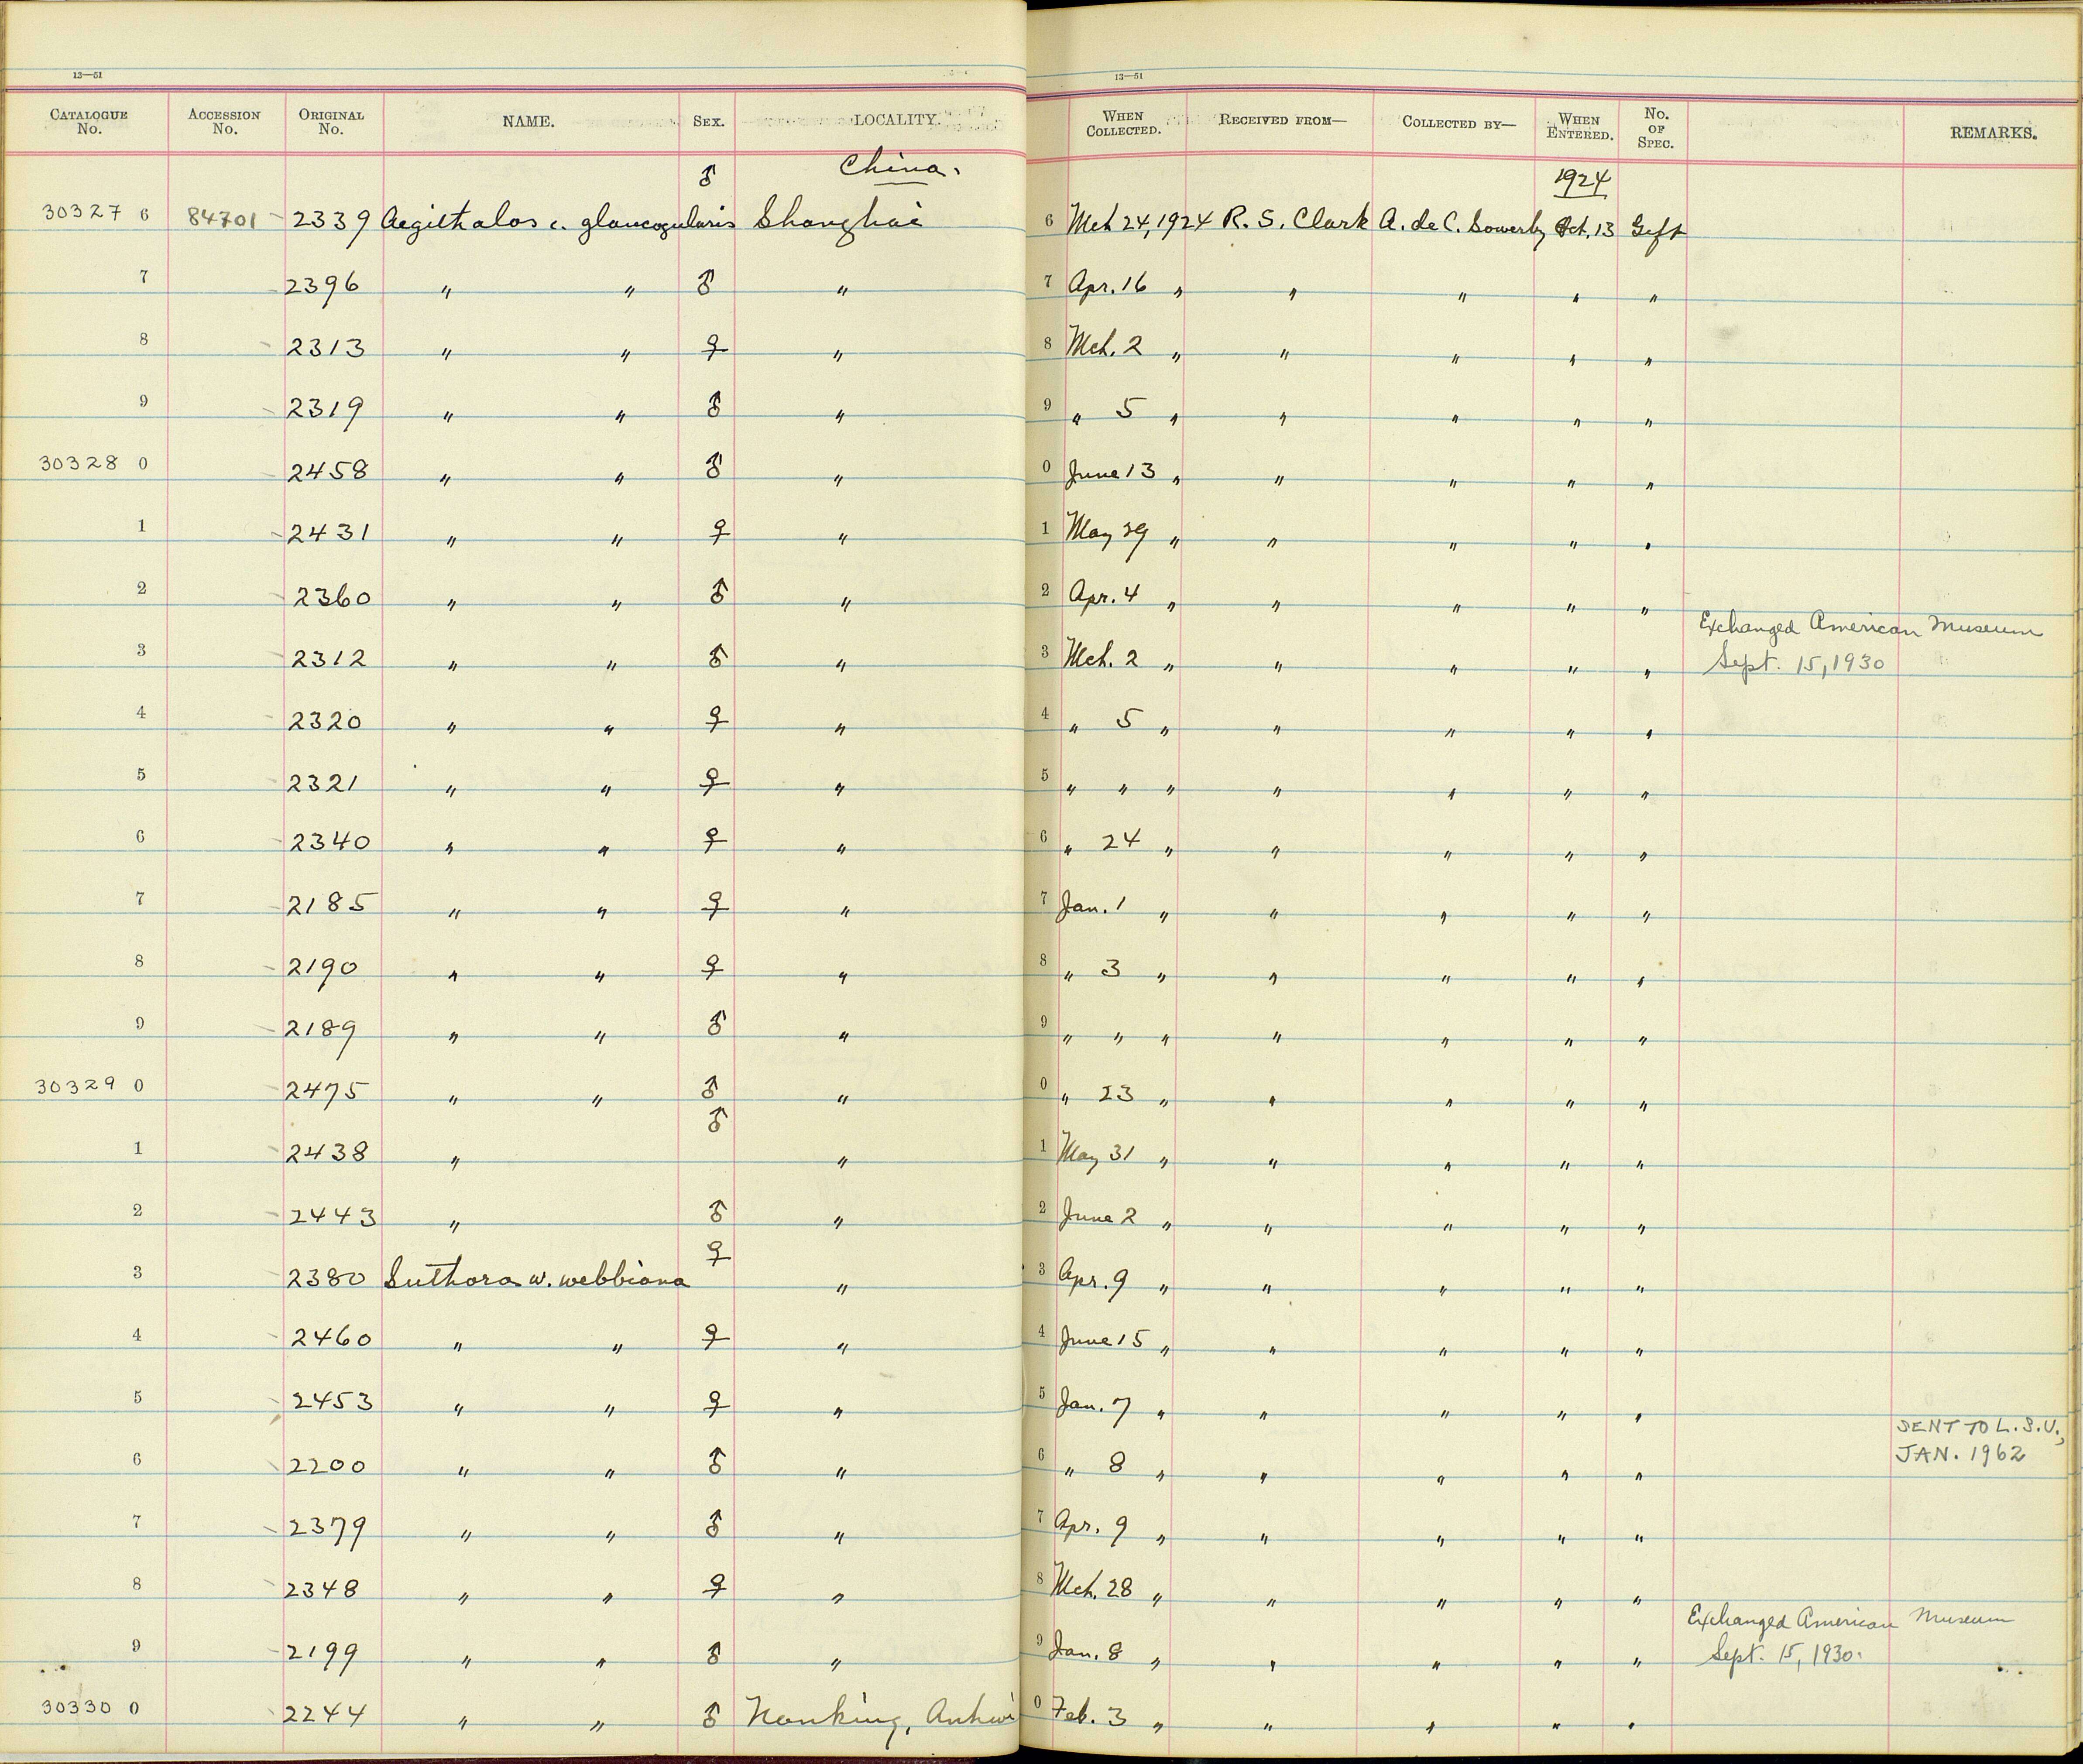 13—51
13—51
CATALOGUE No. ACCESSION No. ORIGINAL No. NAME. SEX. LOCALITY. WHEN COLLECTED. RECEIVED FROM— COLLECTED BY— WHEN ENTERED. No. OF SPEC. REMARKS.
China.
1924
30327 6 84701 2339 Aegithalos c. glaucogularis ♂ Shanghai 6 Mch 24, 1924 R. S. Clark A. de C. Sowerby Oct. 13 Gift
7 2396 " " ♂ " 7 Apr. 16 " " " " "
8 2313 " " ♀ " 8 Mch. 2 " " " " "
9 2319 " " ♂ " 9 " 5 " " " " "
30328 0 2458 " " ♂ " 0 June 13 " " " " "
1 2431 " " ♀ " 1 May 29 " " " " "
2 2360 " " ♂ " 2 Apr. 4 " " " " "
Exchanged American Museum
3 2312 " " ♂ " 3 Mch. 2 " " " " " Sept. 15, 1930
4 2320 " " ♀ " 4 " 5 " " " " "
5 2321 " " ♀ " 5 " " " " " " "
6 2340 " " ♀ " 6 " 24 " " " " "
7 2185 " " ♀ " 7 Jan. 1 " " " " "
8 2190 " " ♀ " 8 " 3 " " " " "
9 2189 " " ♂ " 9 " " " " " " "
30329 0 2475 " " ♂ " 0 " 23 " " " " "
1 2438 " ♂ " 1 May 31 " " " " "
2 2443 " ♂ " 2 June 2 " " " " "
3 2380 Suthora w. webbiana ♀ " 3 Apr. 9 " " " " "
4 2460 " " ♀ " 4 June 15 " " " " "
5 2453 " " ♀ " 5 Jan. 7 " " " " "
SENT TO L.S.U.,
6 2200 " " ♂ " 6 " 8 " " " " " JAN. 1962
7 2379 " " ♂ " 7 Apr. 9 " " " " "
8 2348 " " ♀ " 8 Mch. 28 " " " " "
Exchanged American Museum
9 2199 " " ♂ " 9 Jan. 8 " " " " " Sept. 15, 1930.
30330 0 2244 " " ♂ Nanking, Anhwi 0 Feb. 3 " " " " "